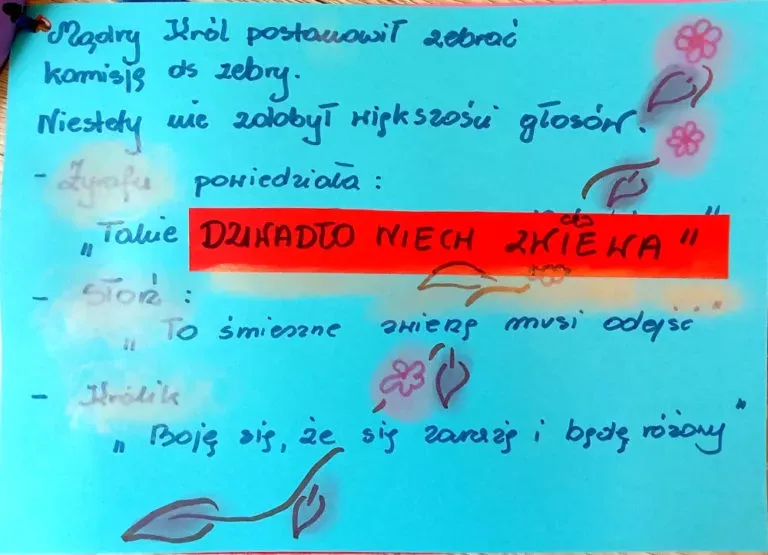 Mądry Król postanowił zebrać
komisję ds zebry.
Niestety nie zdobył większości głosów.
- Żyrafa powiedziała :
„Takie DZIWADŁO NIECH ZWIEWA"
- Słoń :
„To śmieszne zwierzę musi odejść"
- Królik
„Boję się, że się zarażę i będę różowy"